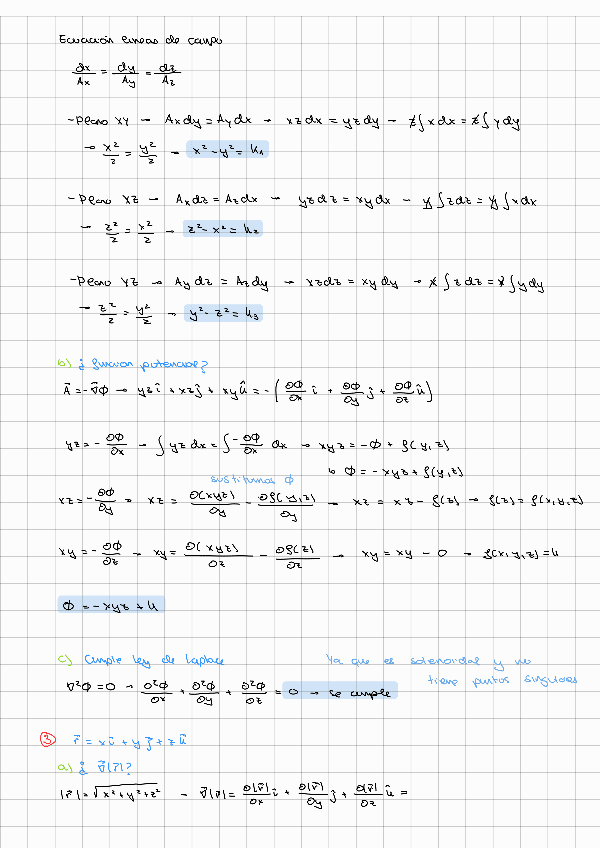 Ecuación líneas de campo
dx/Ax = dy/Ay = dz/Az
- Plano XY → Ax dy = Ay dx → xz dx = yz dy → z∫x dx = z∫y dy
→ x²/2 = y²/2 → x² - y² = k₁
- Plano XZ → Ax dz = Az dx → yz dz = xy dx → y∫z dz = y∫x dx
→ z²/2 = x²/2 → z² - x² = k₂
- Plano YZ → Ay dz = Az dy → xz dz = xy dy → x∫z dz = x∫y dy
→ z²/2 = y²/2 → y² - z² = k₃
b) ¿función potencial?
A⃗ = -∇⃗Φ → yz î + xz ĵ + xy k̂ = -(∂Φ/∂x î + ∂Φ/∂y ĵ + ∂Φ/∂z k̂)
yz = -∂Φ/∂x → ∫yz dx = ∫-∂Φ/∂x dx → xyz = -Φ + f(y,z)
↳ Φ = -xyz + f(y,z)
sustituimos Φ
xz = -∂Φ/∂y → xz = ∂(xyz)/∂y - ∂f(y,z)/∂y → xz = xz - f(z) → f(z) = f(x,y,z)
xy = -∂Φ/∂z → xy = ∂(xyz)/∂z - ∂f(z)/∂z → xy = xy - 0 → f(x,y,z) = k
Φ = -xyz + k
c) Cumple ley de Laplace
Ya que es solenoidal y no
tiene puntos singulares
∇²Φ = 0 → ∂²Φ/∂x + ∂²Φ/∂y + ∂²Φ/∂z = 0 → se cumple
③ r⃗ = x î + y ĵ + z k̂
a) ¿ ∇⃗|r⃗|?
|r⃗| = √(x²+y²+z²) → ∇⃗|r⃗| = ∂|r⃗|/∂x î + ∂|r⃗|/∂y ĵ + ∂|r⃗|/∂z k̂ =